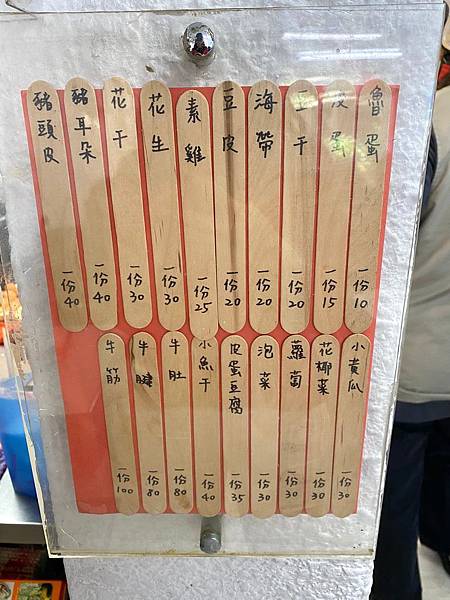 魯蛋 一份10
皮蛋 一份15
豆干 一份20
海帶 一份20
豆皮 一份20
素雞 一份25
花生 一份30
花干 一份30
豬耳朵 一份40
豬頭皮 一份40
小黃瓜 一份30
花椰菜 一份30
蘿蔔 一份30
泡菜 一份30
皮蛋豆腐 一份35
小魚干 一份40
牛肚 一份80
牛腱 一份80
牛筋 一份100